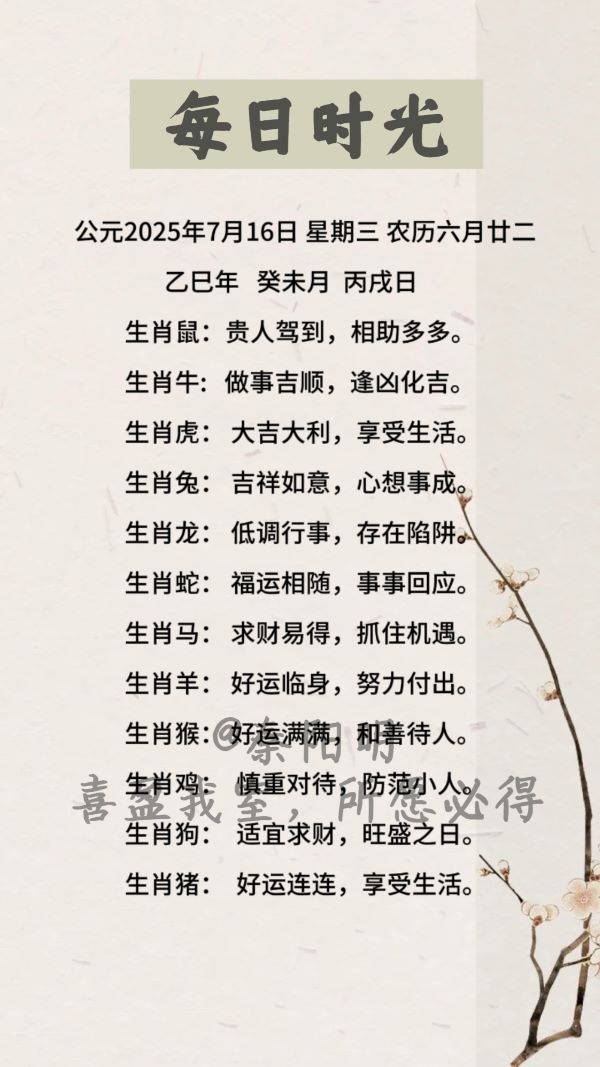 每日时光
公元2025年7月16日 星期三 农历六月廿二
乙巳年 癸未月 丙戌日
生肖鼠：贵人驾到，相助多多。
生肖牛：做事吉顺，逢凶化吉。
生肖虎：大吉大利，享受生活。
生肖兔：吉祥如意，心想事成。
生肖龙：低调行事，存在陷阱。
生肖蛇：福运相随，事事回应。
生肖马：求财易得，抓住机遇。
生肖羊：好运临身，努力付出。
生肖猴：好运满满，和善待人。
@秦阳明
生肖鸡：慎重对待，防范小人。
喜盈我室，所愿必得
生肖狗：适宜求财，旺盛之日。
生肖猪：好运连连，享受生活。